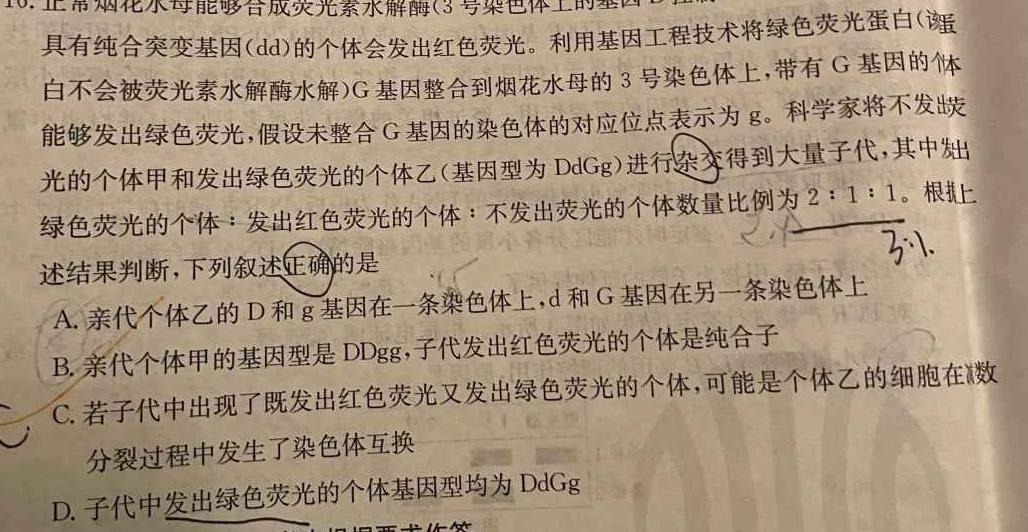 16. 正常烟花水母能够合成荧光素水解酶(3 号染色体上的基因 D 控
具有纯合突变基因(dd)的个体会发出红色荧光。利用基因工程技术将绿色荧光蛋白(该蛋
白不会被荧光素水解酶水解)G 基因整合到烟花水母的 3 号染色体上,带有 G 基因的个体
能够发出绿色荧光,假设未整合 G 基因的染色体的对应位点表示为 g。科学家将不发出荧
光的个体甲和发出绿色荧光的个体乙(基因型为 DdGg)进行杂交得到大量子代,其中发出
绿色荧光的个体∶发出红色荧光的个体∶不发出荧光的个体数量比例为 2∶1∶1。根据上
3:1.
述结果判断,下列叙述正确的是
A. 亲代个体乙的 D 和 g 基因在一条染色体上,d 和 G 基因在另一条染色体上
B. 亲代个体甲的基因型是 DDgg,子代发出红色荧光的个体是纯合子
C. 若子代中出现了既发出红色荧光又发出绿色荧光的个体,可能是个体乙的细胞在减数
分裂过程中发生了染色体互换
D. 子代中发出绿色荧光的个体基因型均为 DdGg